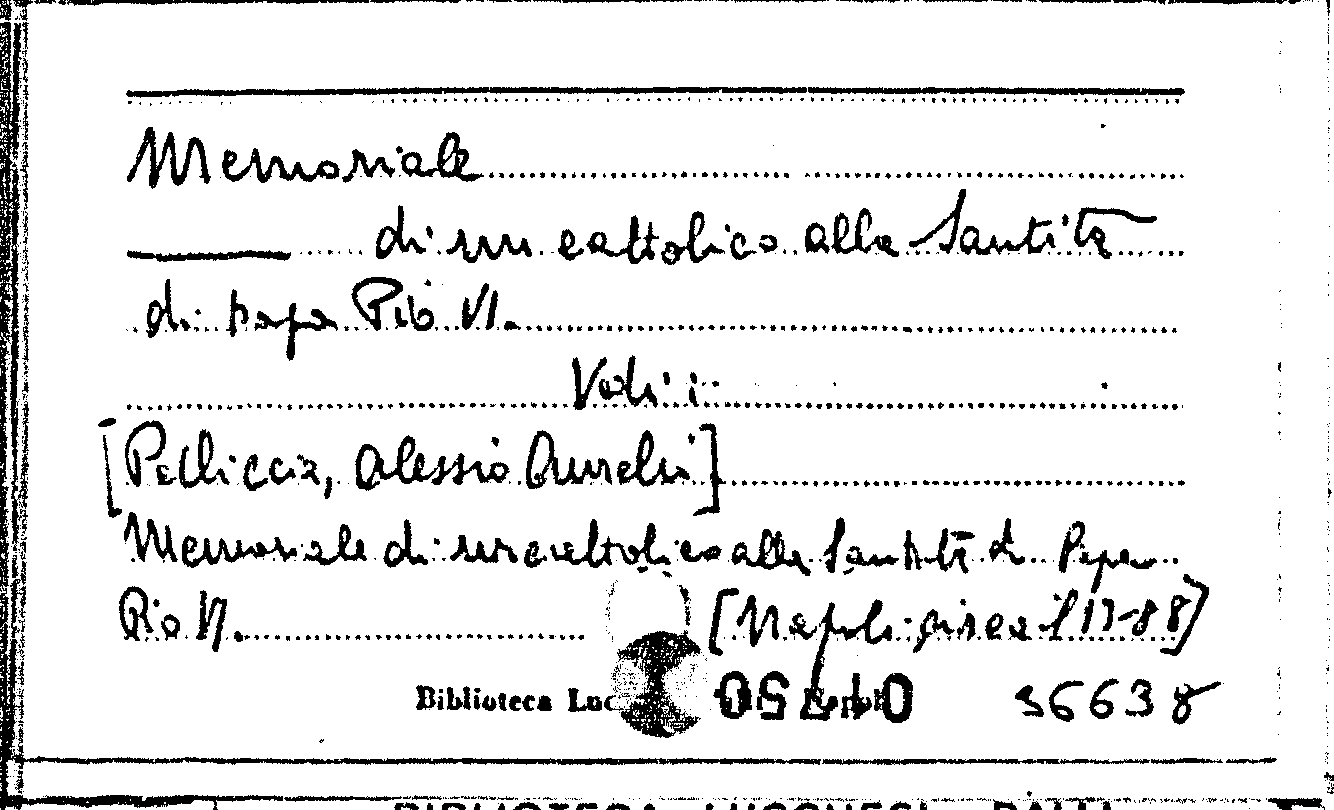 Memoriale
di un cattolico alla Santità
di papa Pio VI.
Vedi:
[Pelliccia, Alessio Aurelio]
Memoriale di un cattolico alla Santità di Papa
Pio VI.
[Napoli circa il 1788]
Biblioteca
36638